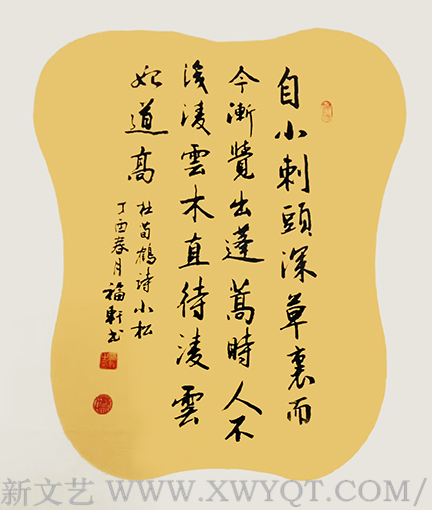 自小刺頭深草裏而
今漸覺出蓬蒿時人不
識淩雲木直待淩雲
始道高
杜荀鶴詩小松
丁酉春月福軒书
新文艺 WWW.XWYQT.COM/